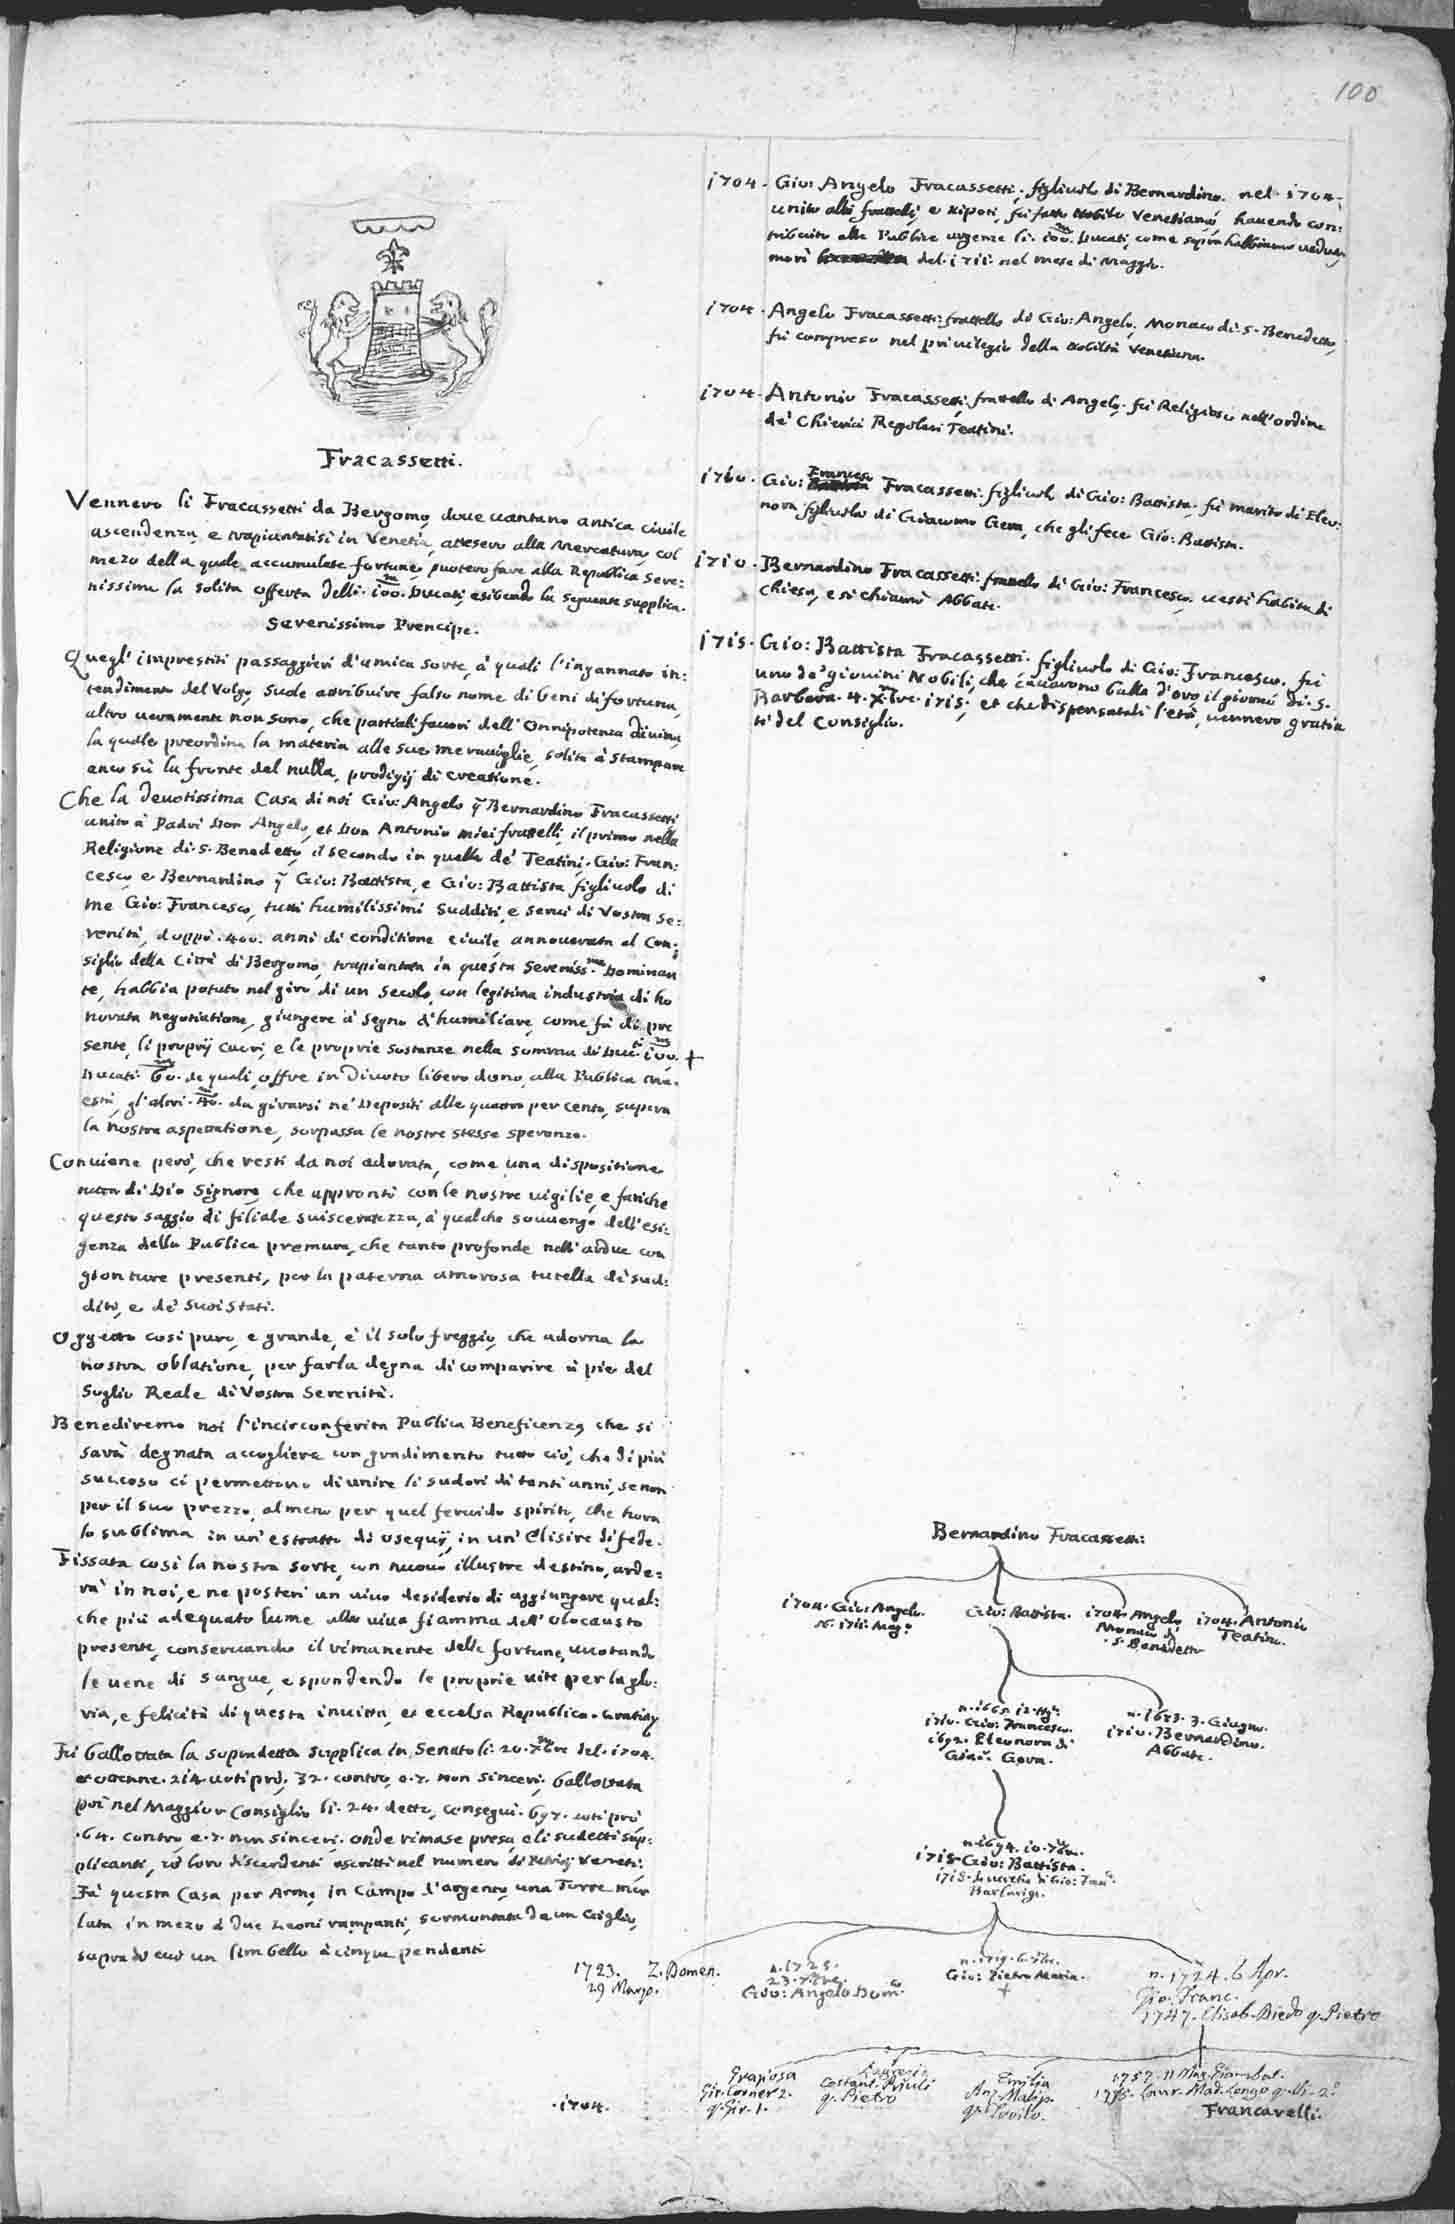 100
Fracassetti.
Vennero li Fracassetti da Bergomo, doue uantano antica ciuile
ascendenza, e trapiantatisi in Venetia, attesero alla Mercatura, col
mezo della quale accumulate fortune, puotero fare alla Republica Sere:
nissima la solita offerta delli 100 Ducati, esibendo la seguente supplica.
Serenissimo Prencipe.
Quegl' imprestiti passaggieri d'amica sorte, à quali l'ingannato in:
tendimento del Volgo, suole attribuire falso nome di beni di fortuna,
altro ueramente non sono, che partiali fauori dell' Onnipotenza diuina,
la quale preordina la materia alle sue merauiglie, solita à stampare
anco sù la fronte del nulla, prodigij di creatione.
Che la deuotissima Casa di noi Gio: Angelo q Bernardino Fracassetti
unito à Padri Don Angelo, et Don Antonio miei frattelli, il primo nella
Religione di S. Benedetto, il secondo in quella de' Teatini, Gio: Fran:
cesco e Bernardino q Gio: Battista, e Gio: Battista figliuolo di
me Gio: Francesco, tutti humilissimi sudditi, e serui di Vostra Se:
renità, doppò 400. anni di conditione ciuile annouerata al Con:
siglio della Città di Bergomo, trapiantata in questa Sereniss.ma Dominan
te, habbia potuto nel giro di un secolo, con legitima industria di ho
norata negotiatione, giungere à segno d'humiliare, come fà di pre
sente, li proprij cuori, e le proprie sostanze nella somma di Duc.ti 100. +
Ducati 60. de quali, offre in diuoto libero dono, alla Publica Ma:
està, gl'altri 40. da girarsi ne' Depositi alle quatro per cento, supera
la nostra aspettatione, sorpassa le nostre stesse speranze.
Conuiene però, che resti da noi adorata, come una dispositione
tutta di Dio Signore, che appronti con le nostre uigilie, e fatiche
questo saggio di filiale suisceratezza, à qualche souuengo dell'esi:
genza della Publica premura, che tanto profonde nell'ardue con
gionture presenti, per la paterna amorosa tutella de' sud:
diti, e de' suoi stati.
Oggetto così puro, e grande, è il solo freggio, che adorna la
nostra oblatione, per farla degna di comparire à pie del
Soglio Reale di Vostra Serenità.
Benediremo noi l'incirconferita Publica Beneficenza, che si
sarà degnata accogliere con gradimento tutto ciò, che di più
succoso ci permettono di unire li sudori di tanti anni, se non
per il suo prezzo, almeno per quel feruido spirito, che hora
lo sublima in un' estratto di osequij, in un' Elisire di fede.
Fissata così la nostra sorte, con nuouo illustre destino, arde:
rà in noi, e ne posteri un uiuo desiderio di aggiungere qual:
che più adequato lume alla uiua fiamma dell' olocausto
presente, conseruando il rimanente delle fortune, uuotando
le uene di sangue, e spondendo le proprie uite per la glo:
ria, e felicità di questa inuitta, et eccelsa Republica. Gratie
Fù ballottata la sopradetta supplica in Senato li 20. Xbre del 1704.
et ottenne 214 uoti prò, 32. contro, e 7. non sinceri; ballottata
poi nel Maggior Consiglio li 24. detto, conseguì 697. uoti prò
64. contro, e 7. non sinceri. onde rimase presa, e li sudetti sup:
plicanti, co' loro discendenti ascritti nel numero di Patritij Veneti:
Fà questa Casa per Arme, in Campo d'argento, una Torre mer
lata in mezo à due Leoni rampanti, sormontata da un Giglio,
sopra di cui un limbello à cinque pendenti
1704. Gio: Angelo Fracassetti, figliuolo di Bernardino. nel 1704.
unito alli frattelli, e Nipoti, fù fatto Nobile Venetiano, hauendo con:
tribuito alle Publiche urgenze li 100. Ducati, come sopra habbiamo ueduto,
morì del 1711. nel mese di Maggio.
1704. Angelo Fracassetti, frattello di Gio: Angelo, Monaco di S. Benedetto,
fù compreso nel priuilegio della Nobiltà Venetiana.
1704. Antonio Fracassetti, frattello di Angelo. fù Religioso nell'ordine
de' Chierici Regolari Teatini.
1710. Gio: Francesco Fracassetti. figliuolo di Gio: Battista. fù marito di Eleo:
nora figliuola di Giacomo Gera, che gli fece Gio: Battista.
1710. Bernardino Fracassetti. frattello di Gio: Francesco. uestì habito di
Chiesa, e si chiamò Abbate.
1715. Gio: Battista Fracassetti. figliuolo di Gio: Francesco. fù
uno de' giouini Nobili, che cauarono balla d'oro il giorno di S.
Barbara 4. Xbre 1715, et che dispensatali l'età, uennero gratia
ti del Consiglio.
Bernardino Fracassetti:
1704. Gio: Angelo. Gio: Battista. 1704. Angelo 1704. Antonio
1711. Mag.o Monaco di Teatino.
S. Benedetto
n. 1665. n. 1673. 3. Giugno.
1710. Gio: Francesco. 1710. Bernardino.
1692. Eleonora di Abbate.
Giac.o Gera.
n. 1694. 10.
1715. Gio: Battista.
1718. Lucretia di Gio: Fran.
Barbarigo.
1723. Z. Domen. n. 1725. n. 1719. 6. n. 1724. 6 Apr.
29 Marzo. 23. Gio: Pietro Maria. Gio. Franc.
Gio: Angelo Dom.o + 1747. Elisab. Diedo q. Pietro
Graziosa Lugrezia Emilia 1757. 11 Mag. Giambat.
Gir. Corner 2. Costant. Priuli Anz. Malip. Laur. Mad. Longo
q. Gir. 1. q. Pietro q.
1704. Francavelli.